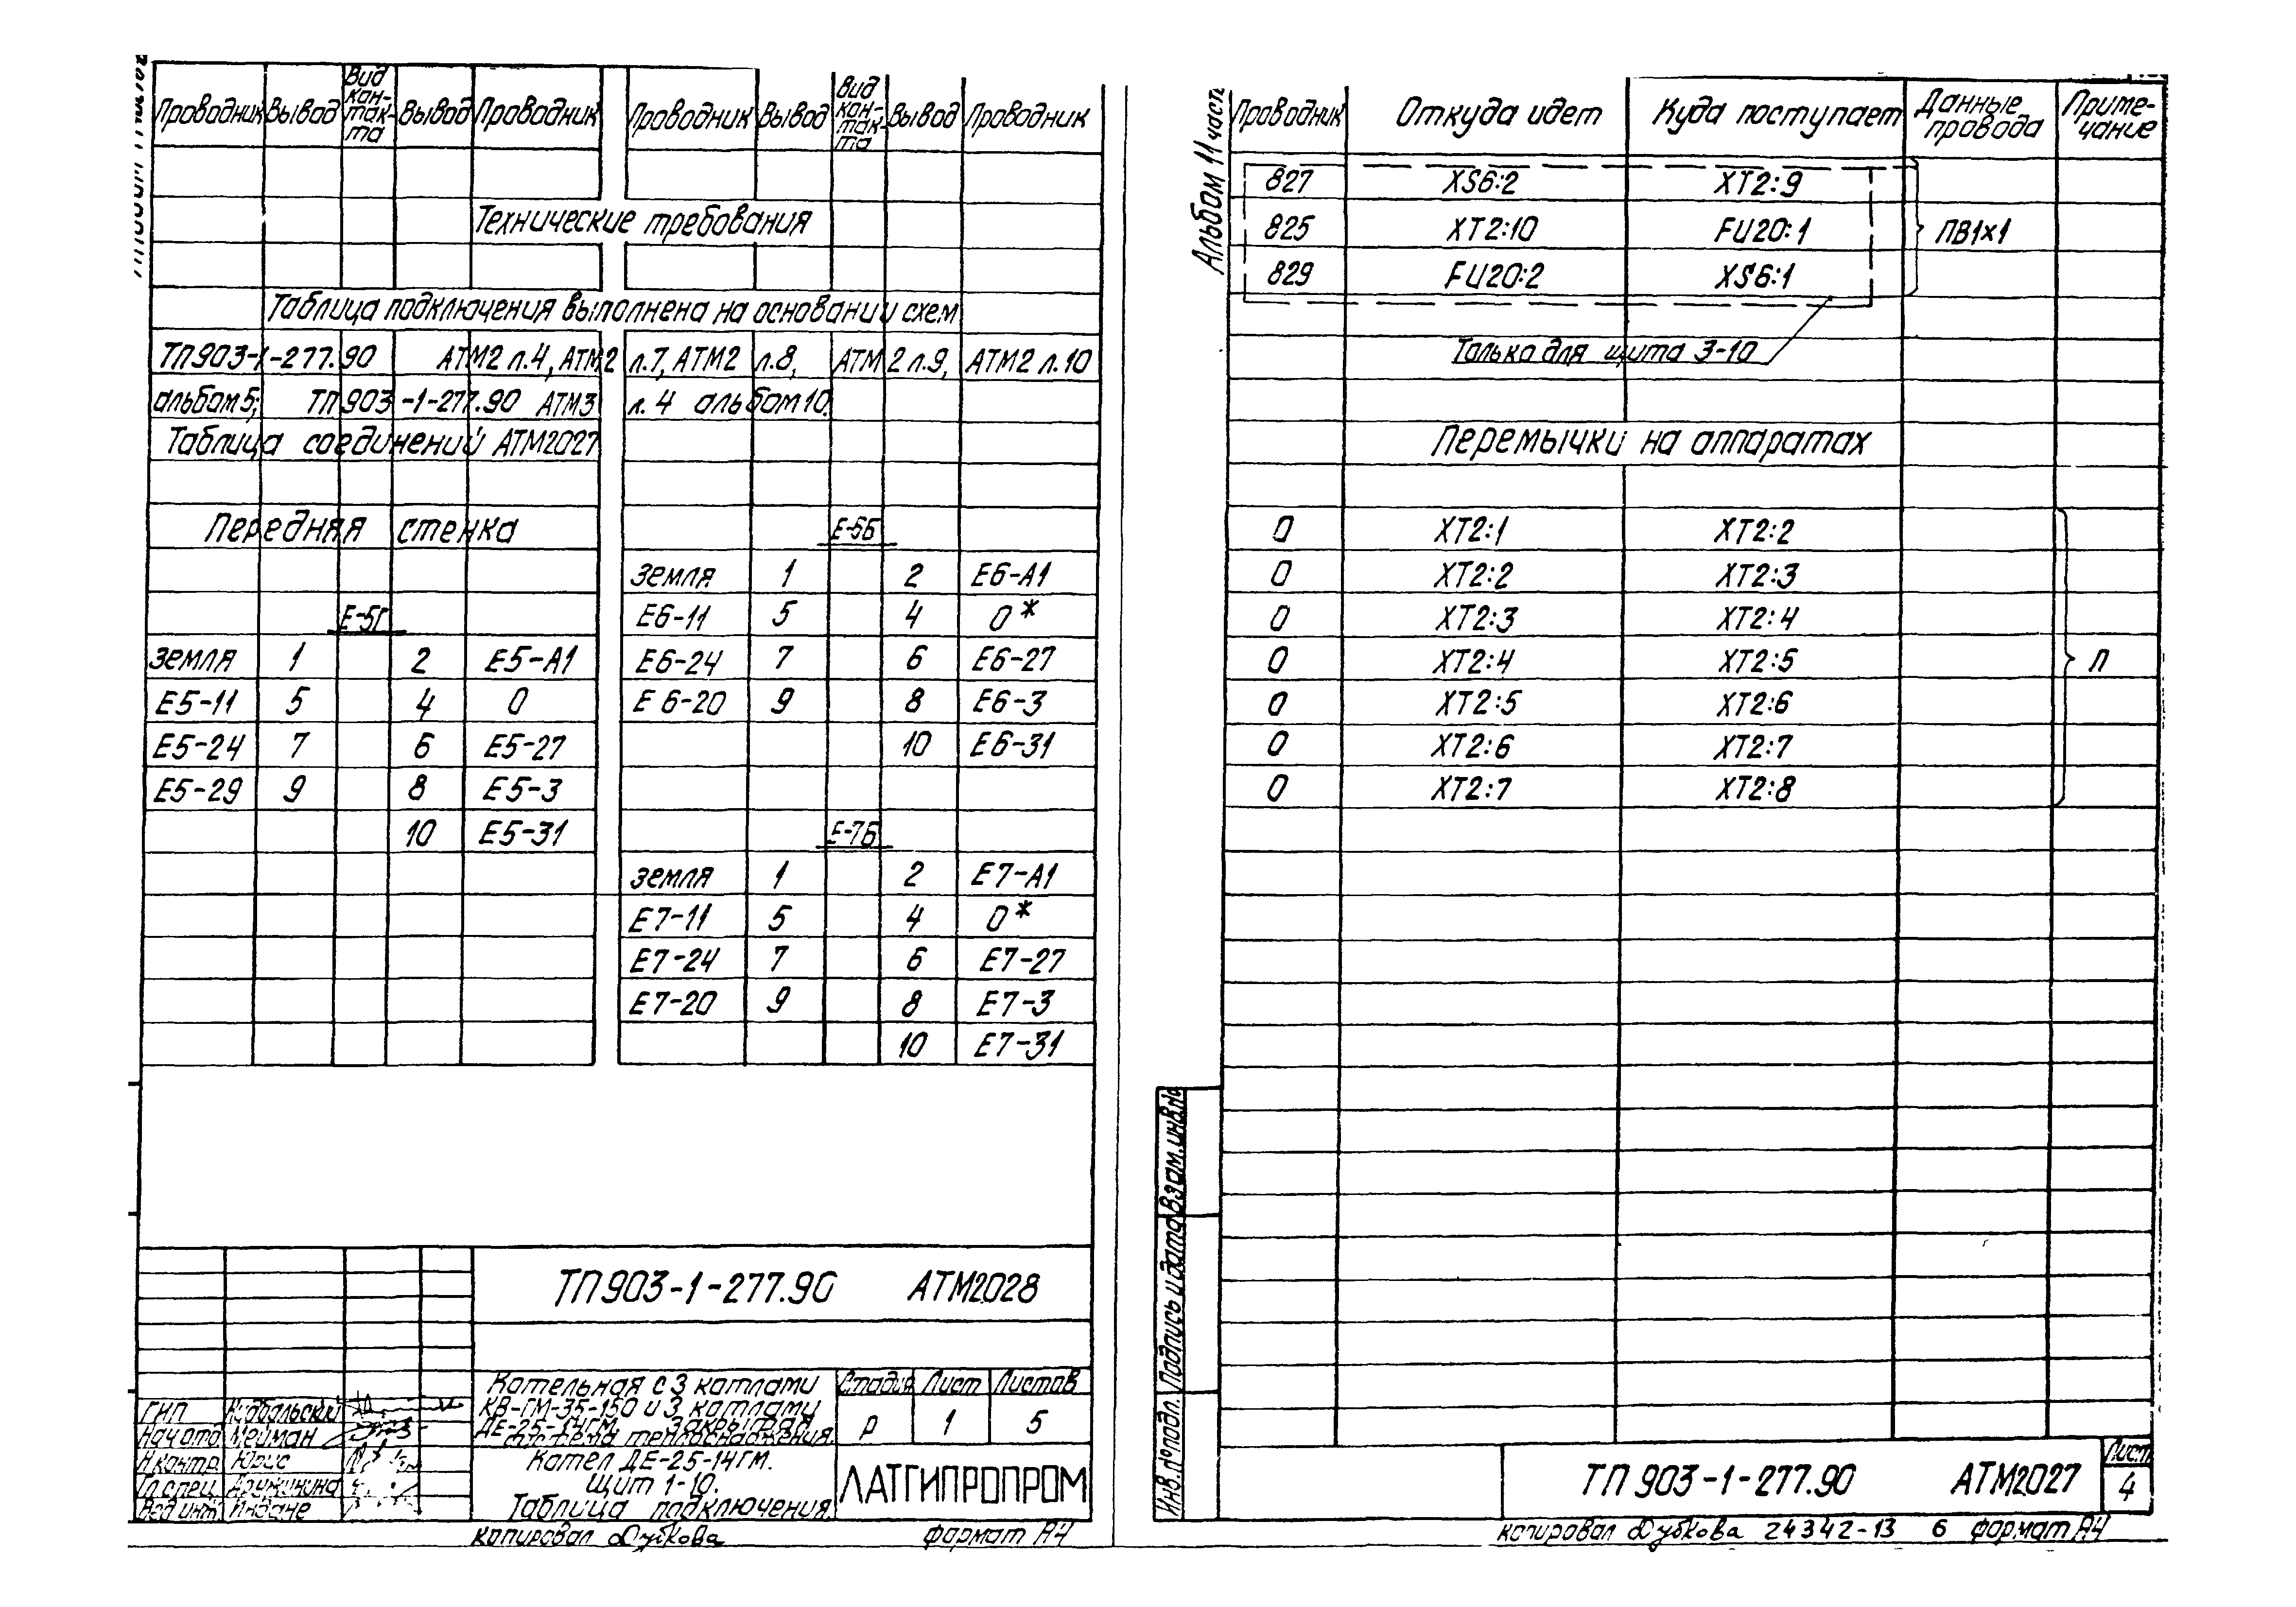 Проводник Вывод Вид кон-так-та Вывод Проводник Проводник Вывод Вид кон-так-та Вывод Проводник
Технические требования
Таблица подключения выполнена на основании схем
ТП903-1-277.90 АТМ2 л.4, АТМ2 л.7, АТМ2 л.8, АТМ2 л.9, АТМ2 л.10
альбом 5; ТП903-1-277.90 АТМ3 л.4 альбом 10.
Таблица соединений АТМ2027
Передняя стенка
Е-5Г
земля 1 2 Е5-А1
Е5-11 5 4 0
Е5-24 7 6 Е5-27
Е5-29 9 8 Е5-3
10 Е5-31
Е-6Б
земля 1 2 Е6-А1
Е6-11 5 4 0*
Е6-24 7 6 Е6-27
Е6-20 9 8 Е6-3
10 Е6-31
Е-7Б
земля 1 2 Е7-А1
Е7-11 5 4 0*
Е7-24 7 6 Е7-27
Е7-20 9 8 Е7-3
10 Е7-31
ТП903-1-277.90 АТМ2028
Котельная с 3 котлами
КВ-ГМ-35-150 и 3 котлами
ДЕ-25-14ГМ. Закрытая
система теплоснабжения.
Стадия Лист Листов
р 1 5
Котел ДЕ-25-14ГМ.
Щит 1-10.
Таблица подключения.
ЛАТГИПРОПРОМ
ГИП
Нач отд Мейман
Н контр. Юрис
Гл.спец. Дружинина
Вед инж
копировал Дубкова формат А4
Альбом 11 часть
Проводник Откуда идет Куда поступает Данные провода Приме-чание
827 XS6:2 XT2:9
825 XT2:10 FU20:1 ПВ1х1
829 FU20:2 XS6:1
Только для щита 3-10
Перемычки на аппаратах
0 XT2:1 XT2:2
0 XT2:2 XT2:3
0 XT2:3 XT2:4
0 XT2:4 XT2:5 П
0 XT2:5 XT2:6
0 XT2:6 XT2:7
0 XT2:7 XT2:8
Инв.№подл. Подпись и дата Взам.инв.№
ТП 903-1-277.90 АТМ2027
Лист
4
копировал Дубкова 24342-13 6 формат А4